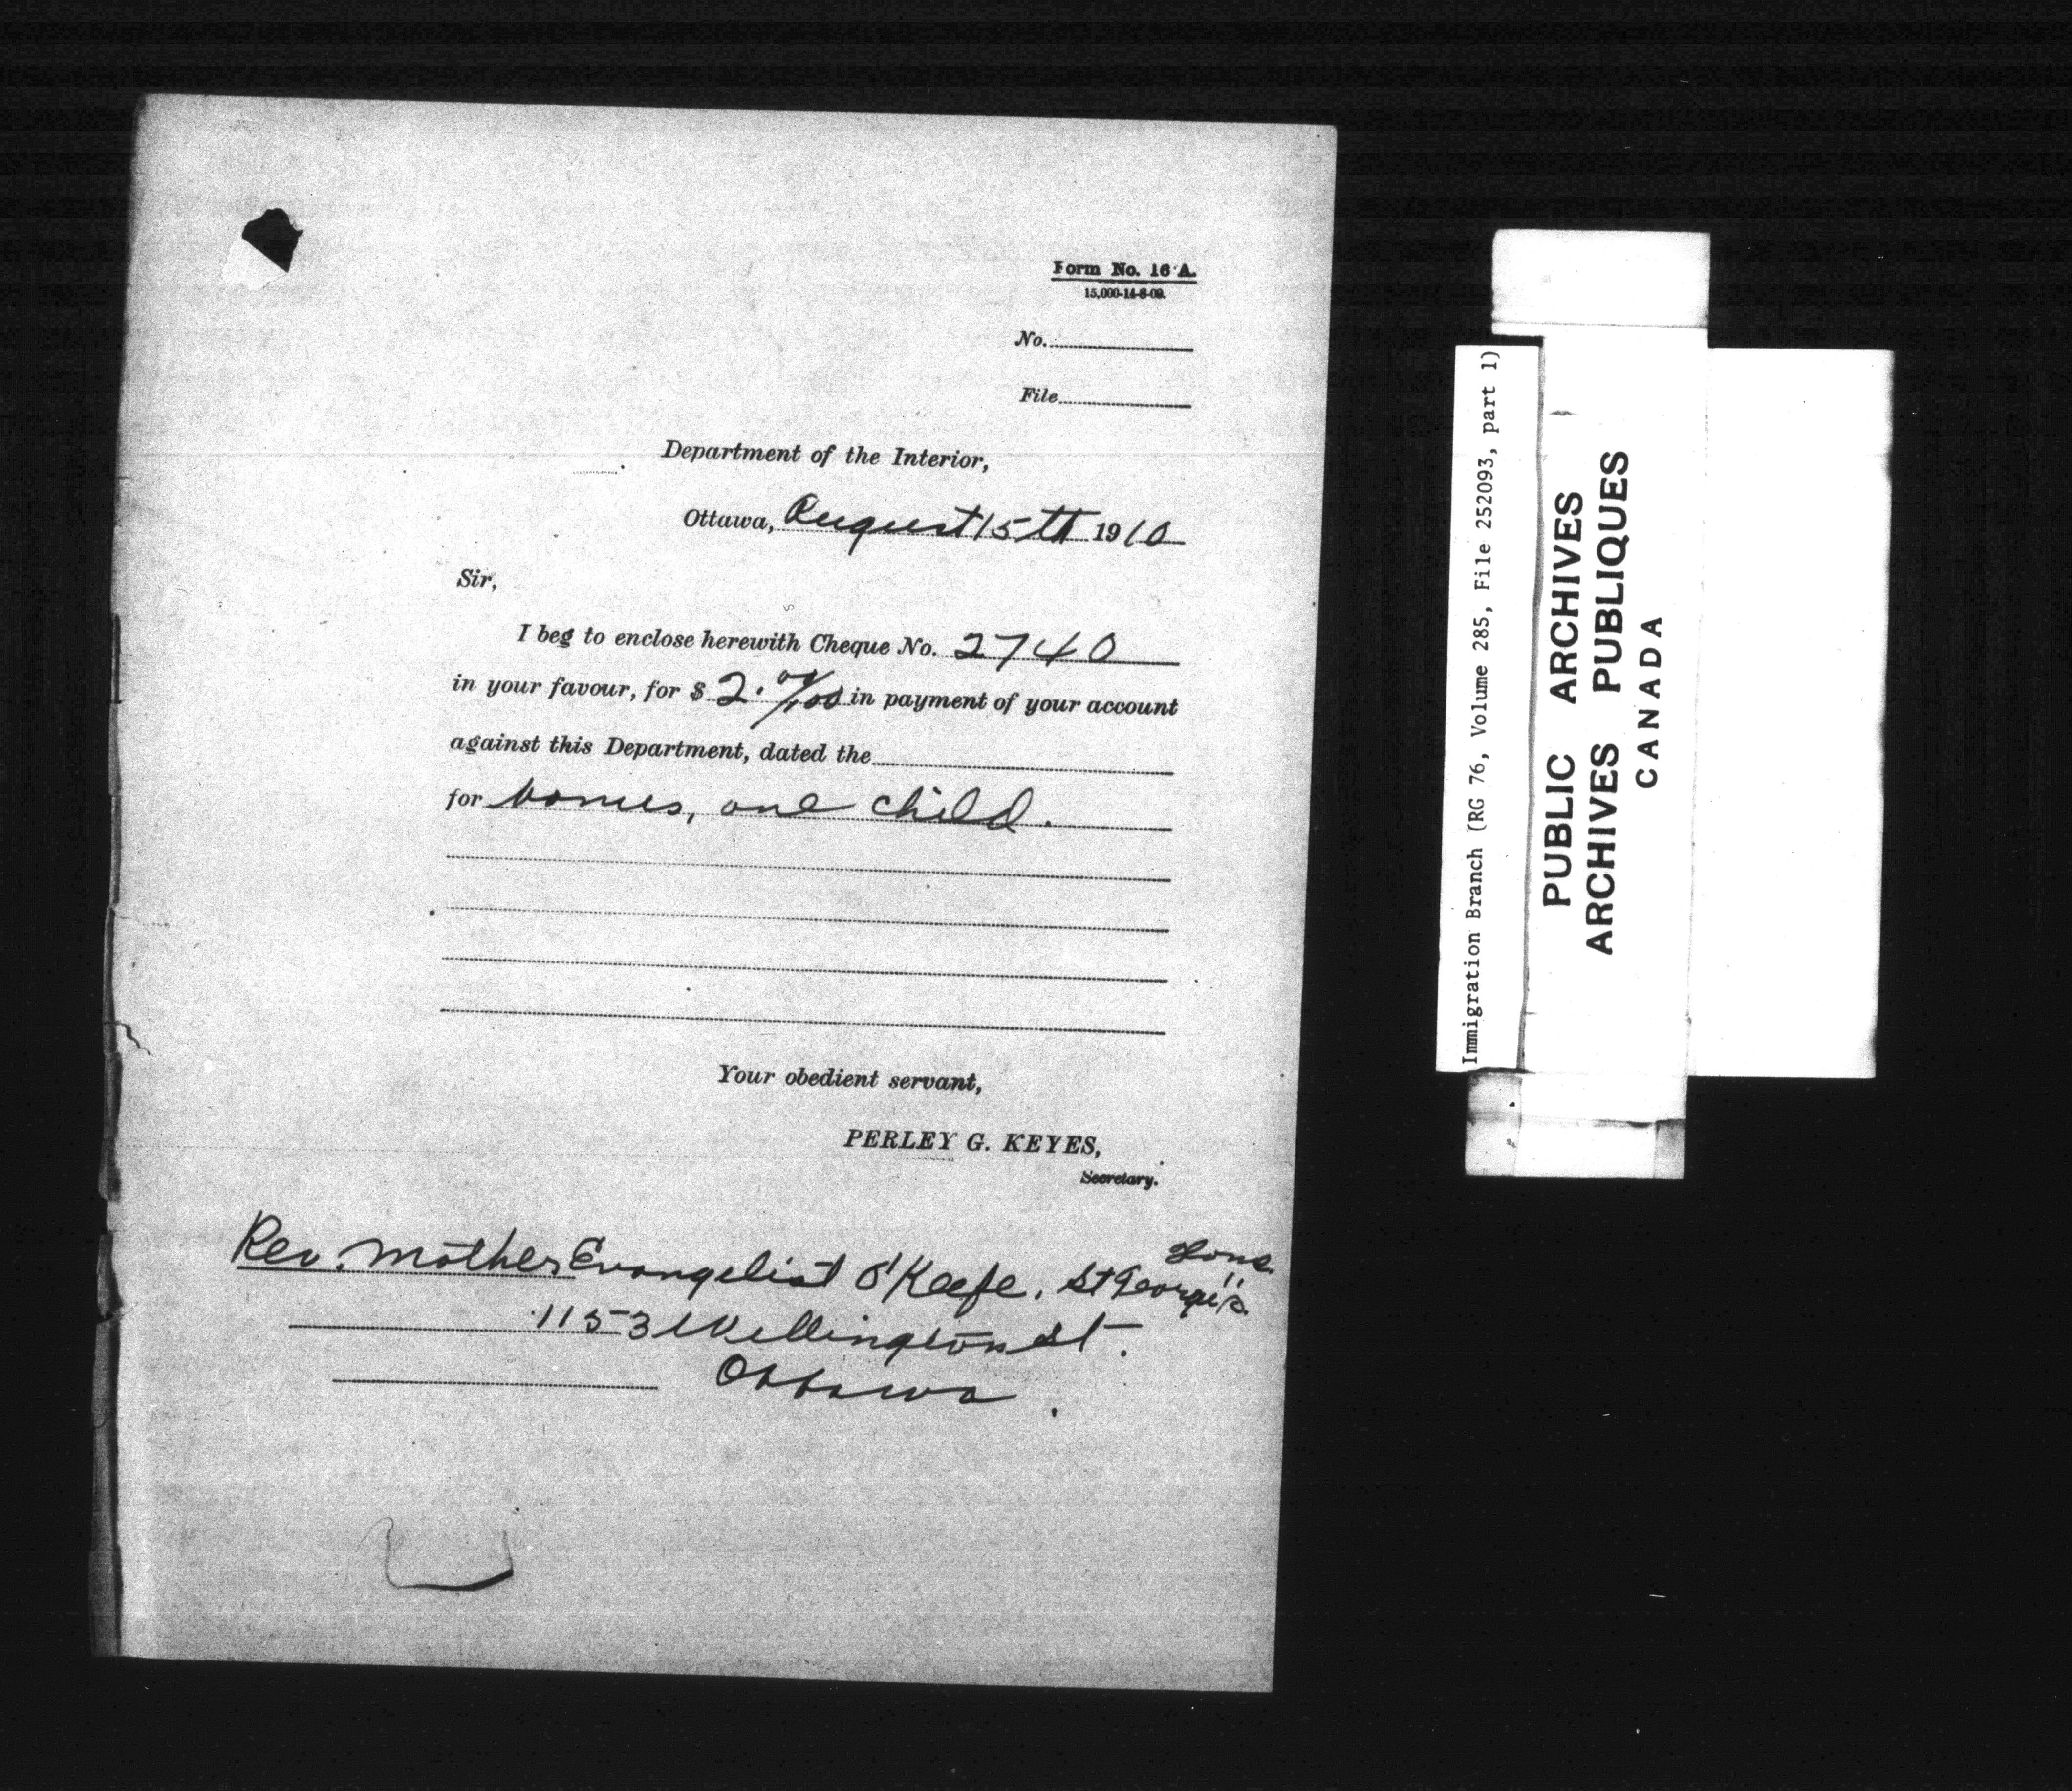 Form No. 16 A.
15,000-14-6-09.
No.
File
Department of the Interior,
Ottawa, August 15th 1910
Sir,
I beg to enclose herewith Cheque No. 2740
in your favour, for $ 2.00/100 in payment of your account
against this Department, dated the
for bonus, one child.
Your obedient servant,
PERLEY G. KEYES,
Secretary.
Rev. Mother Evangelist O'Keefe, St George's Home
1153 Wellington St.
Ottawa.
Immigration Branch (RG 76, Volume 285, File 252093, part 1)
PUBLIC ARCHIVES
ARCHIVES PUBLIQUES
CANADA